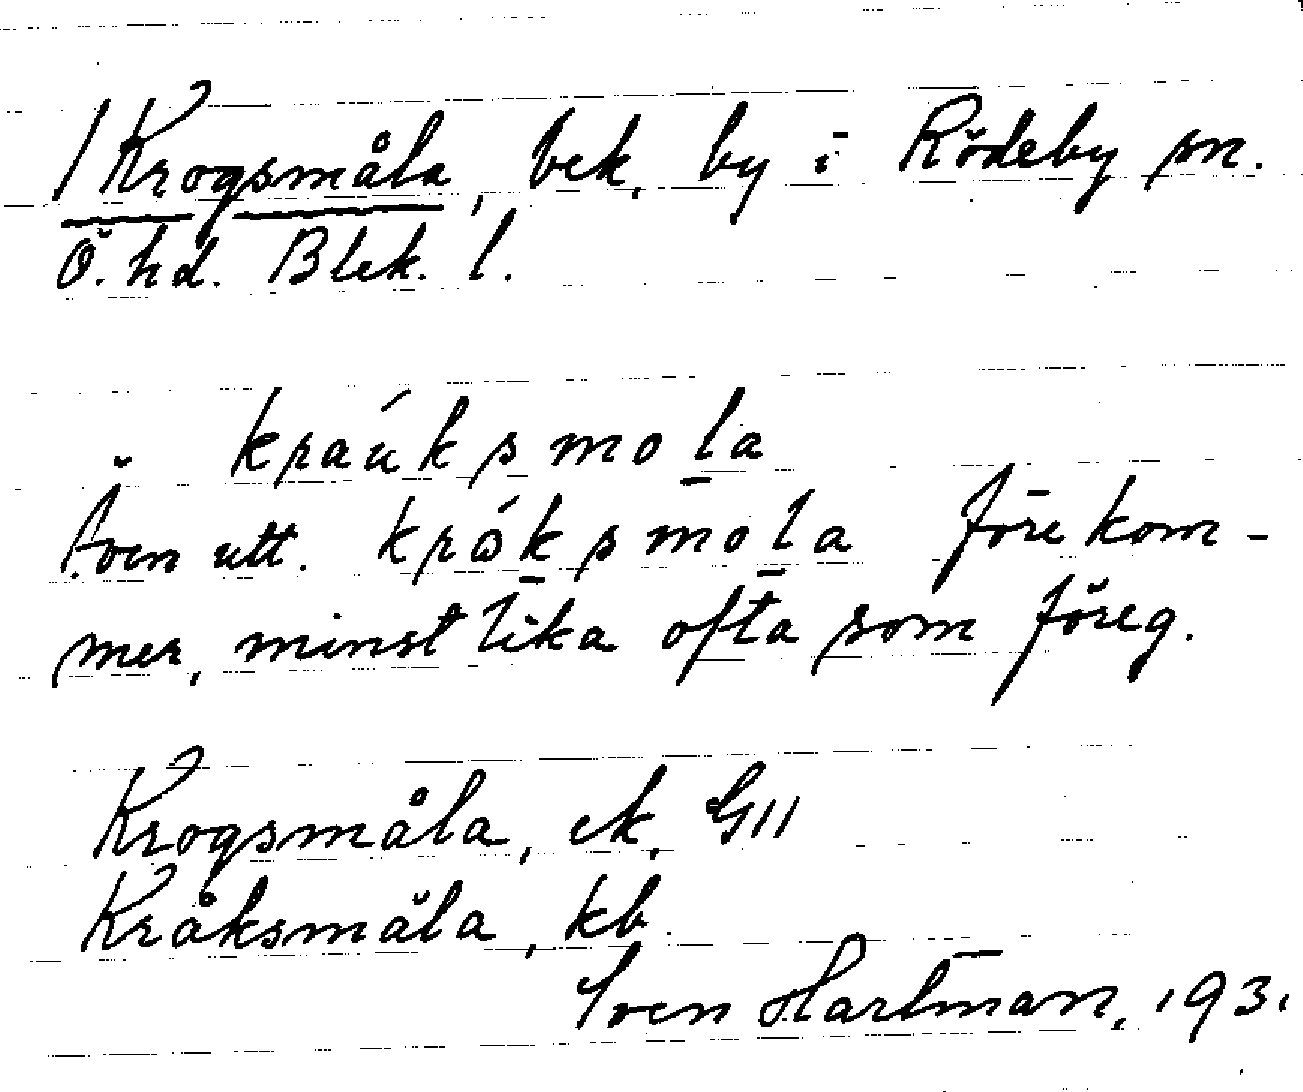 /Krogsmåla, bek. by i Rödeby sn.
Ö. hd. Blek. l.
kraúksmola
Även utt. króksmola förekom-
mer, minst lika ofta som föreg.
Krogsmåla, ek, GII
Kråksmåla, kb.
Sven Hartman, 1931